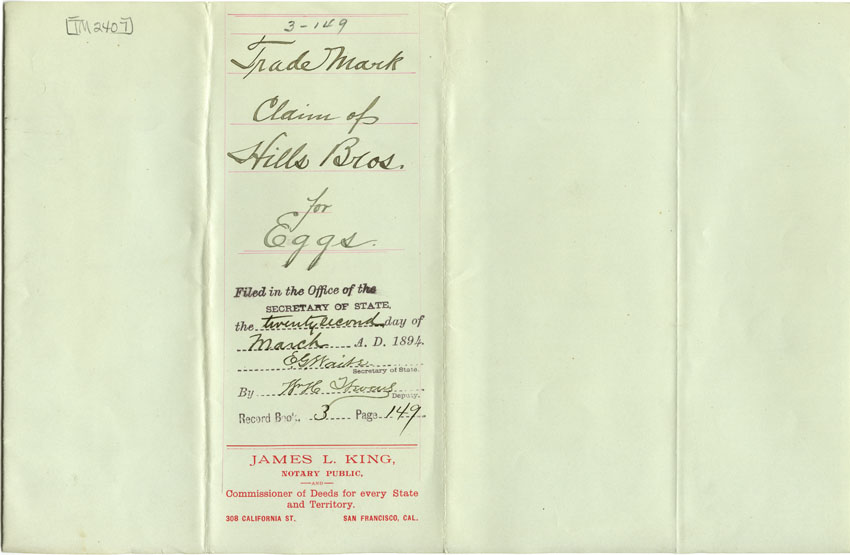 [TM 2407]
3-149
Trade Mark
Claim of
Hills Bros.
for
Eggs.
Filed in the Office of the
SECRETARY OF STATE,
the twenty second day of
March A. D. 1894.
E G Waite
Secretary of State.
By W H
Deputy.
Record Book. 3 Page 149
JAMES L. KING,
NOTARY PUBLIC,
AND
Commissioner of Deeds for every State
and Territory.
308 CALIFORNIA ST. SAN FRANCISCO, CAL.